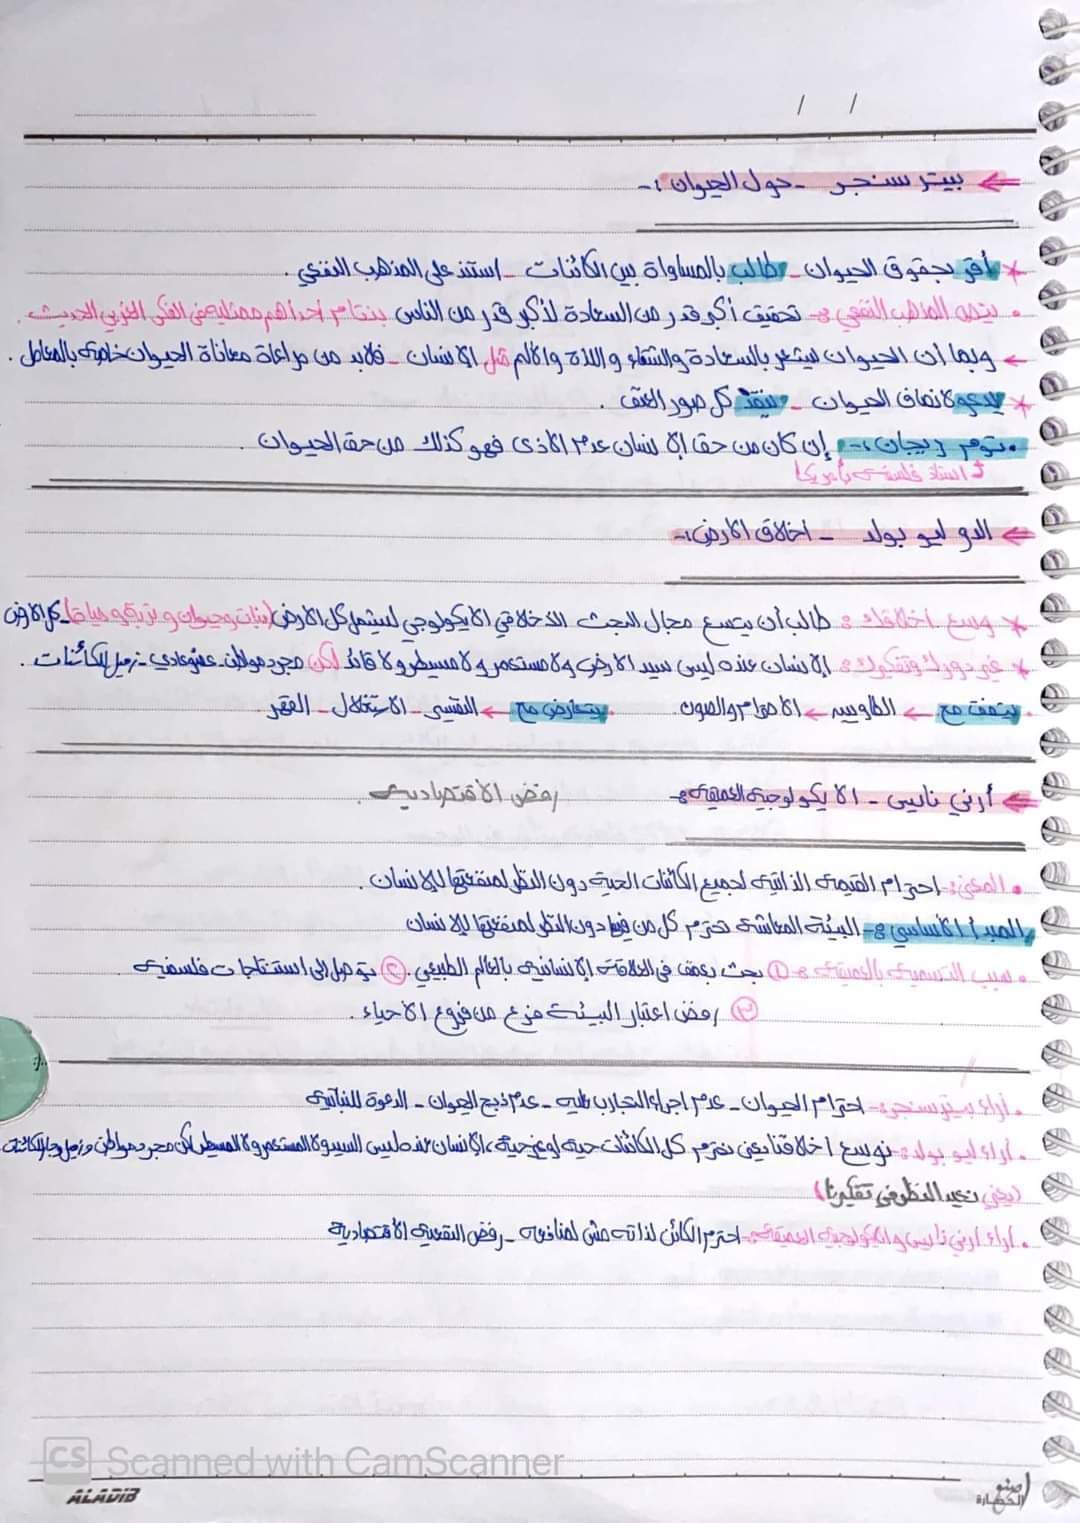 / /
⇐ بيتر سنجر - حول الحيوان :-
* أقر بحقوق الحيوان - طالب بالمساواة بين الكائنات - استند على المذهب النفعي .
• المذهب النفعي :- تحقيق أكبر قدر من السعادة لأكبر قدر من الناس بنتام أحد أهم ممثليه في الفكر الغربي الحديث .
← وبما أن الحيوان يشعر بالسعادة والشقاء واللذة والألم مثل الإنسان - فلابد من مراعاة معاناة الحيوان خاصة بالمعامل .
* يدعو لانصاف الحيوان - ينقد كل صور العنف .
• توم ريجان :- إن كان من حق الإنسان عدم الأذى فهو كذلك من حق الحيوان .
استاذ فلسفة بأمريكا
⇐ الدو ليوبولد - اخلاق الارض :-
* وسع أخلاقك :- طالب أن يتسع مجال البحث الاخلاقي الايكولوجي ليشمل كل الارض (نبات وحيوان وتربة ومياه) - كل الارض
* غير دورك وتفكيرك :- الإنسان عنده ليس سيد الارض ولا مستعمر ولا مسيطر ولا قائد لكن مجرد مواطن - عضو عادي - زميل للكائنات .
• يتفق مع ← الطاويه ← الاحترام والصون . • يتعارض مع ← التقسيم - الاستغلال - القهر .
⇐ أرني نايس - الايكولوجية العميقة :- رفض الاقتصادية .
• المعنى :- احترام القيمة الذاتية لجميع الكائنات الحية دون النظر لمنفعتها للإنسان .
المبدأ الأساسي :- البيئة المعاشة نحترم كل من فيها دون النظر لمنفعتها للإنسان
• سبب التسمية بالعميقة :- ① بحث بعمق في العلاقة الإنسانية بالعالم الطبيعي . ② توصل إلى استنتاجات فلسفية
③ رفض اعتبار البيئة فرع من فروع الأحياء .
• آراء بيتر سنجر :- احترام الحيوان - عدم اجراء التجارب عليه - عدم ذبح الحيوان - الدعوة للنباتية
• آراء ليو بولد :- نوسع اخلاقنا يعني نحترم كل الكائنات حية او غير حية ، الإنسان عنده ليس السيد ولا المستعمر ولا المسيطر لكن مجرد مواطن وزميل وجار للكائنات
(يعني نعيد النظر في تفكيرنا)
• آراء أرني نايس والايكولوجية العميقة :- احترم الكائن لذاته مش لمنافعه - رفض النفعية الاقتصادية
CS Scanned with CamScanner
ALADIB
صنع الحضارة